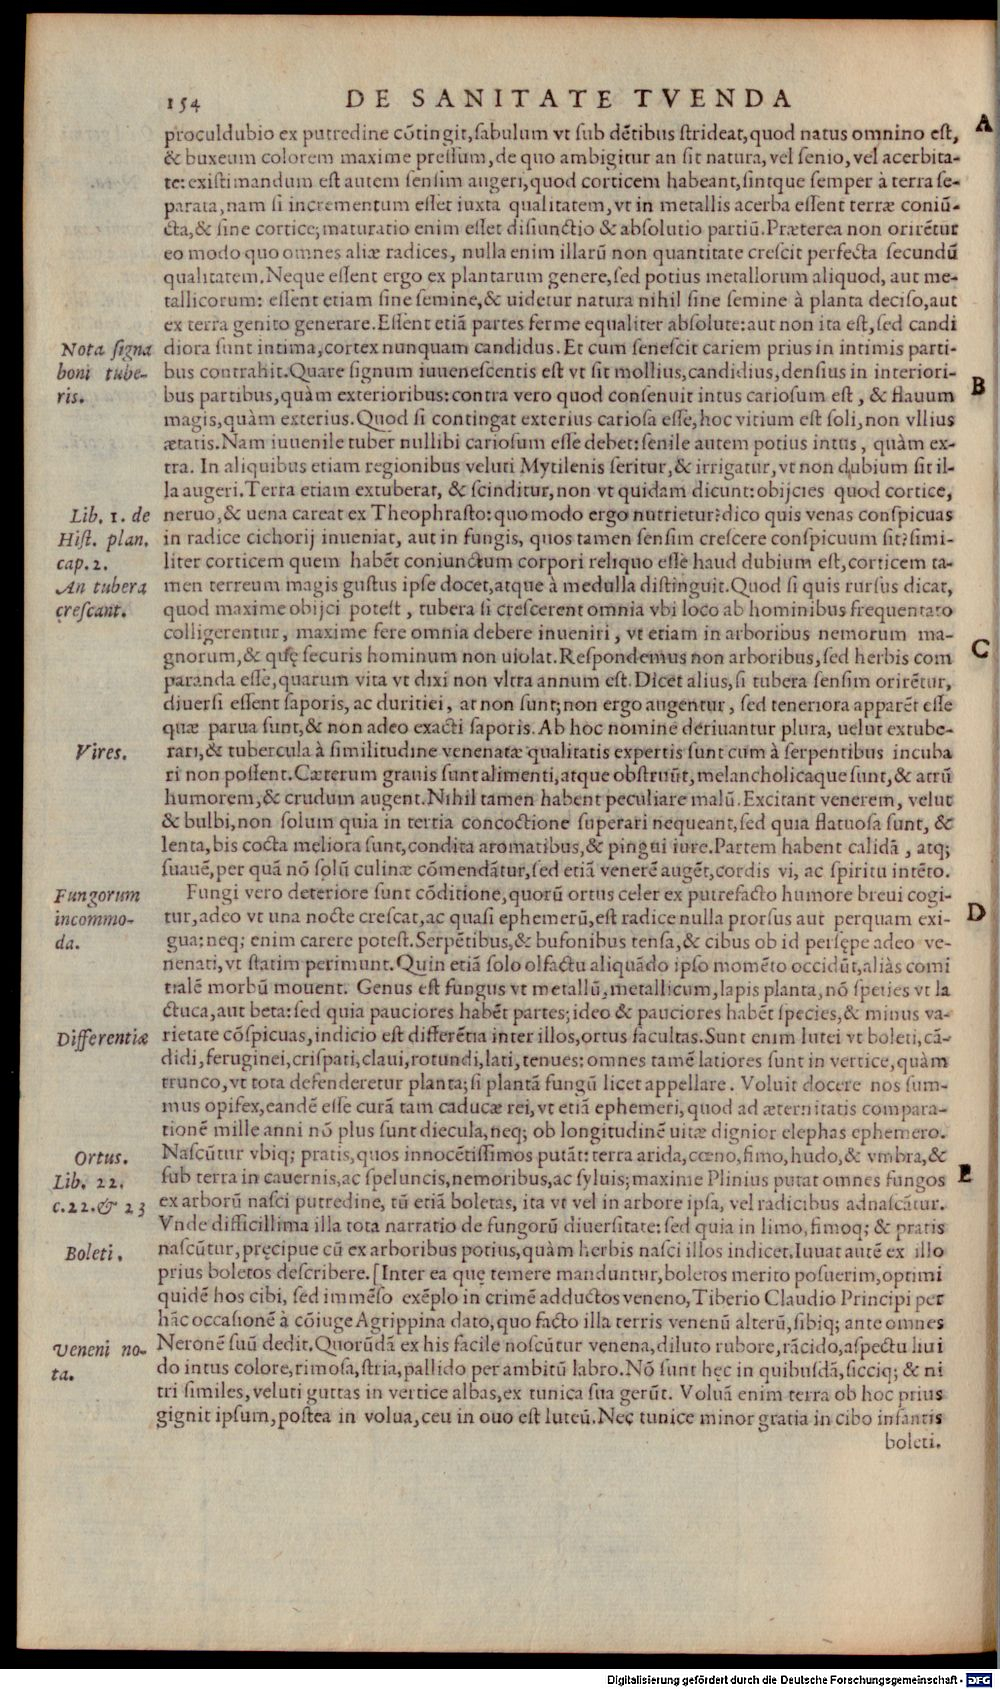 154 DE SANITATE TVENDA
proculdubio ex putredine cōtingit, sabulum vt sub dētibus strideat, quod natus omnino est,
& buxeum colorem maxime pressum, de quo ambigitur an sit natura, vel senio, vel acerbita-
te: existimandum est autem sensim augeri, quod corticem habeant, sintque semper à terra se-
parata, nam si incrementum esset iuxta qualitatem, vt in metallis acerba essent terræ coniū-
cta, & sine cortice; maturatio enim esset disiunctio & absolutio partiū. Præterea non orirētur
eo modo quo omnes aliæ radices, nulla enim illarū non quantitate crescit perfecta secundū
qualitatem. Neque essent ergo ex plantarum genere, sed potius metallorum aliquod, aut me-
tallicorum: essent etiam sine semine, & uidetur natura nihil sine semine à planta deciso, aut
ex terra genito generare. Essent etiā partes ferme equaliter absolute: aut non ita est, sed candi
Nota signa boni tube-ris.
diora sunt intima, cortex nunquam candidus. Et cum senescit cariem prius in intimis parti-
bus contrahit. Quare signum iuuenescentis est vt sit mollius, candidius, densius in interiori-
bus partibus, quàm exterioribus: contra vero quod consenuit intus cariosum est, & flauum
magis, quàm exterius. Quod si contingat exterius cariosa esse, hoc vitium est soli, non vllius
ætatis. Nam iuuenile tuber nullibi cariosum esse debet: senile autem potius intus, quàm ex-
tra. In aliquibus etiam regionibus veluti Mytilenis seritur, & irrigatur, vt non dubium sit il-
la augeri. Terra etiam extuberat, & scinditur, non vt quidam dicunt: obijcies quod cortice,
Lib. 1. de Hist. plan. cap. 2.
An tubera crescant.
neruo, & uena careat ex Theophrasto: quo modo ergo nutrietur? dico quis venas conspicuas
in radice cichorij inueniat, aut in fungis, quos tamen sensim crescere conspicuum sit? simi-
liter corticem quem habēt coniunctum corpori reliquo esse haud dubium est, corticem ta-
men terreum magis gustus ipse docet, atque à medulla distinguit. Quod si quis rursus dicat,
quod maxime obijci potest, tubera si crescerent omnia vbi loco ab hominibus frequentato
colligerentur, maxime fere omnia debere inueniri, vt etiam in arboribus nemorum ma-
gnorum, & quę securis hominum non uiolat. Respondemus non arboribus, sed herbis com
paranda esse, quarum vita vt dixi non vltra annum est. Dicet alius, si tubera sensim orirētur,
diuersi essent saporis, ac duritiei, at non sunt; non ergo augentur, sed teneriora apparēt esse
quæ parua sunt, & non adeo exacti saporis. Ab hoc nomine deriuantur plura, uelut extube-
Vires.
rari, & tubercula à similitudine venenatæ qualitatis expertis sunt cum à serpentibus incuba
ri non possent. Cæterum grauis sunt alimenti, atque obstruūt, melancholicaque sunt, & atrū
humorem, & crudum augent. Nihil tamen habent peculiare malū. Excitant venerem, velut
& bulbi, non solum quia in tertia concoctione superari nequeant, sed quia flatuosa sunt, &
lenta, bis cocta meliora sunt, condita aromatibus, & pingui iure. Partem habent calidā, atq;
suauē, per quā nō solū culinæ cōmendātur, sed etiā venerē augēt, cordis vi, ac spiritu intēto.
Fungorum incommo-da.
Fungi vero deteriore sunt cōditione, quorū ortus celer ex putrefacto humore breui cogi-
tur, adeo vt una nocte crescat, ac quasi ephemerū, est radice nulla prorsus aut perquam exi-
gua: neq; enim carere potest. Serpētibus, & bufonibus tensa, & cibus ob id persępe adeo ve-
nenati, vt statim perimunt. Quin etiā solo olfactu aliquādo ipso momēto occidūt, aliàs comi
tialē morbū mouent. Genus est fungus vt metallū, metallicum, lapis planta, nō species vt la
ctuca, aut beta: sed quia pauciores habēt partes; ideo & pauciores habēt species, & minus va-
Differentiæ
rietate cōspicuas, indicio est differētia inter illos, ortus facultas. Sunt enim lutei vt boleti, cā-
didi, feruginei, crispati, claui, rotundi, lati, tenues: omnes tamē latiores sunt in vertice, quàm
trunco, vt tota defenderetur planta; si plantā fungū licet appellare. Voluit docere nos sum-
mus opifex, eandē esse curā tam caducæ rei, vt etiā ephemeri, quod ad æternitatis compara-
tionē mille anni nō plus sunt diecula, neq; ob longitudinē uitæ dignior elephas ephemero.
Ortus.
Lib. 22. c. 22. & 23
Nascūtur vbiq; pratis, quos innocētissimos putāt: terra arida, cœno, fimo, hudo, & vmbra, &
sub terra in cauernis, ac speluncis, nemoribus, ac syluis; maxime Plinius putat omnes fungos
ex arborū nasci putredine, tū etiā boletas, ita vt vel in arbore ipsa, vel radicibus adnascātur.
Vnde difficillima illa tota narratio de fungorū diuersitate: sed quia in limo, fimoq; & pratis
Boleti.
nascūtur, pręcipue cū ex arboribus potius, quàm herbis nasci illos indicet. Iuuat autē ex illo
prius boletos describere. [Inter ea quę temere manduntur, boletos merito posuerim, optimi
quidē hos cibi, sed immēso exēplo in crimē adductos veneno, Tiberio Claudio Principi per
hāc occasionē à cōiuge Agrippina dato, quo facto illa terris venenū alterū, sibiq; ante omnes
Veneni no-ta.
Neronē suū dedit. Quorūdā ex his facile noscūtur venena, diluto rubore, rācido, aspectu liui
do intus colore, rimosa, stria, pallido per ambitū labro. Nō sunt hęc in quibusdā, sicciq; & ni
tri similes, veluti guttas in vertice albas, ex tunica sua gerūt. Voluā enim terra ob hoc prius
gignit ipsum, postea in volua, ceu in ouo est luteū. Nec tunice minor gratia in cibo infantis
boleti.
A
B
C
D
E
Digitalisierung gefördert durch die Deutsche Forschungsgemeinschaft - DFG